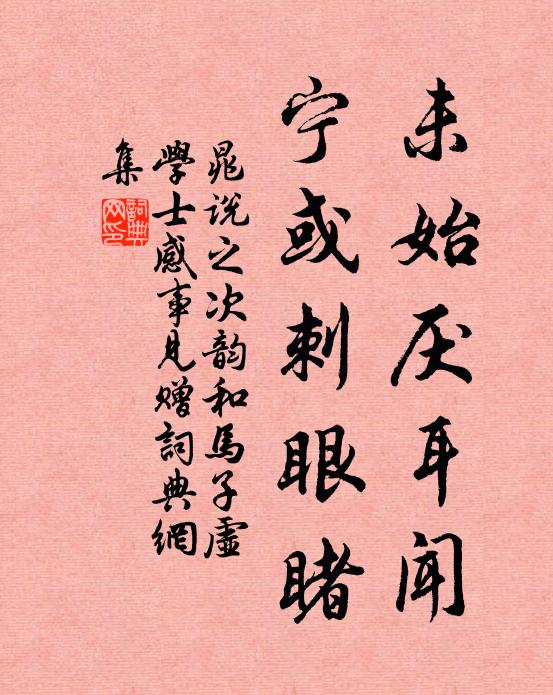 未始厌耳闻
宁或刺眼睹
晁说之次韵和馬子虛
學士感事見赠詞典網
集
詞典
网印